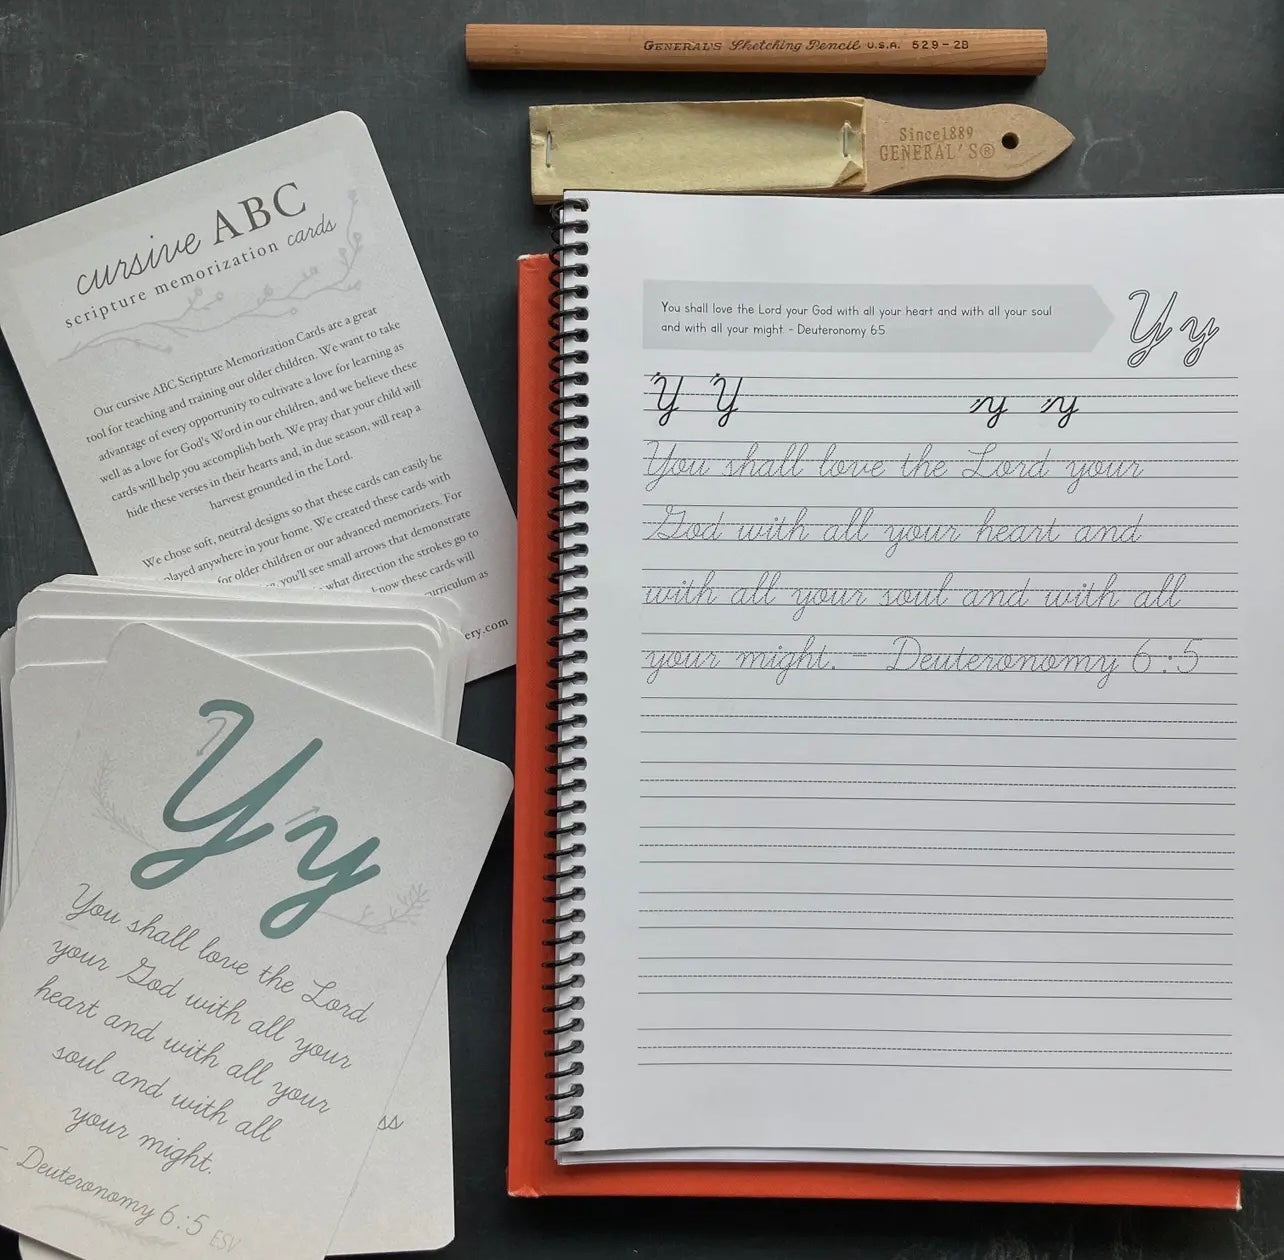 GENERAL'S Sketching Pencil U.S.A. 529-2B
Since1889
GENERAL'S®
cursive ABC
scripture memorization cards
Our cursive ABC Scripture Memorization Cards are a great
tool for teaching and training our older children. We want to take
advantage of every opportunity to cultivate a love for learning as
well as a love for God's Word in our children, and we believe these
cards will help you accomplish both. We pray that your child will
hide these verses in their hearts and, in due season, will reap a
harvest grounded in the Lord.
We chose soft, neutral designs so that these cards can easily be
anywhere in your home. We created these cards with
for older children or our advanced memorizers. For
you'll see small arrows that demonstrate
what direction the strokes go to
these cards will
as
Yy
You shall love the Lord
your God with all your
heart and with all your
soul and with all
your might.
- Deuteronomy 6:5 ESV
ss
You shall love the Lord your God with all your heart and with all your soul
and with all your might - Deuteronomy 65
Yy
Y Y y y
You shall love the Lord your
God with all your heart and
with all your soul and with all
your might. - Deuteronomy 6:5